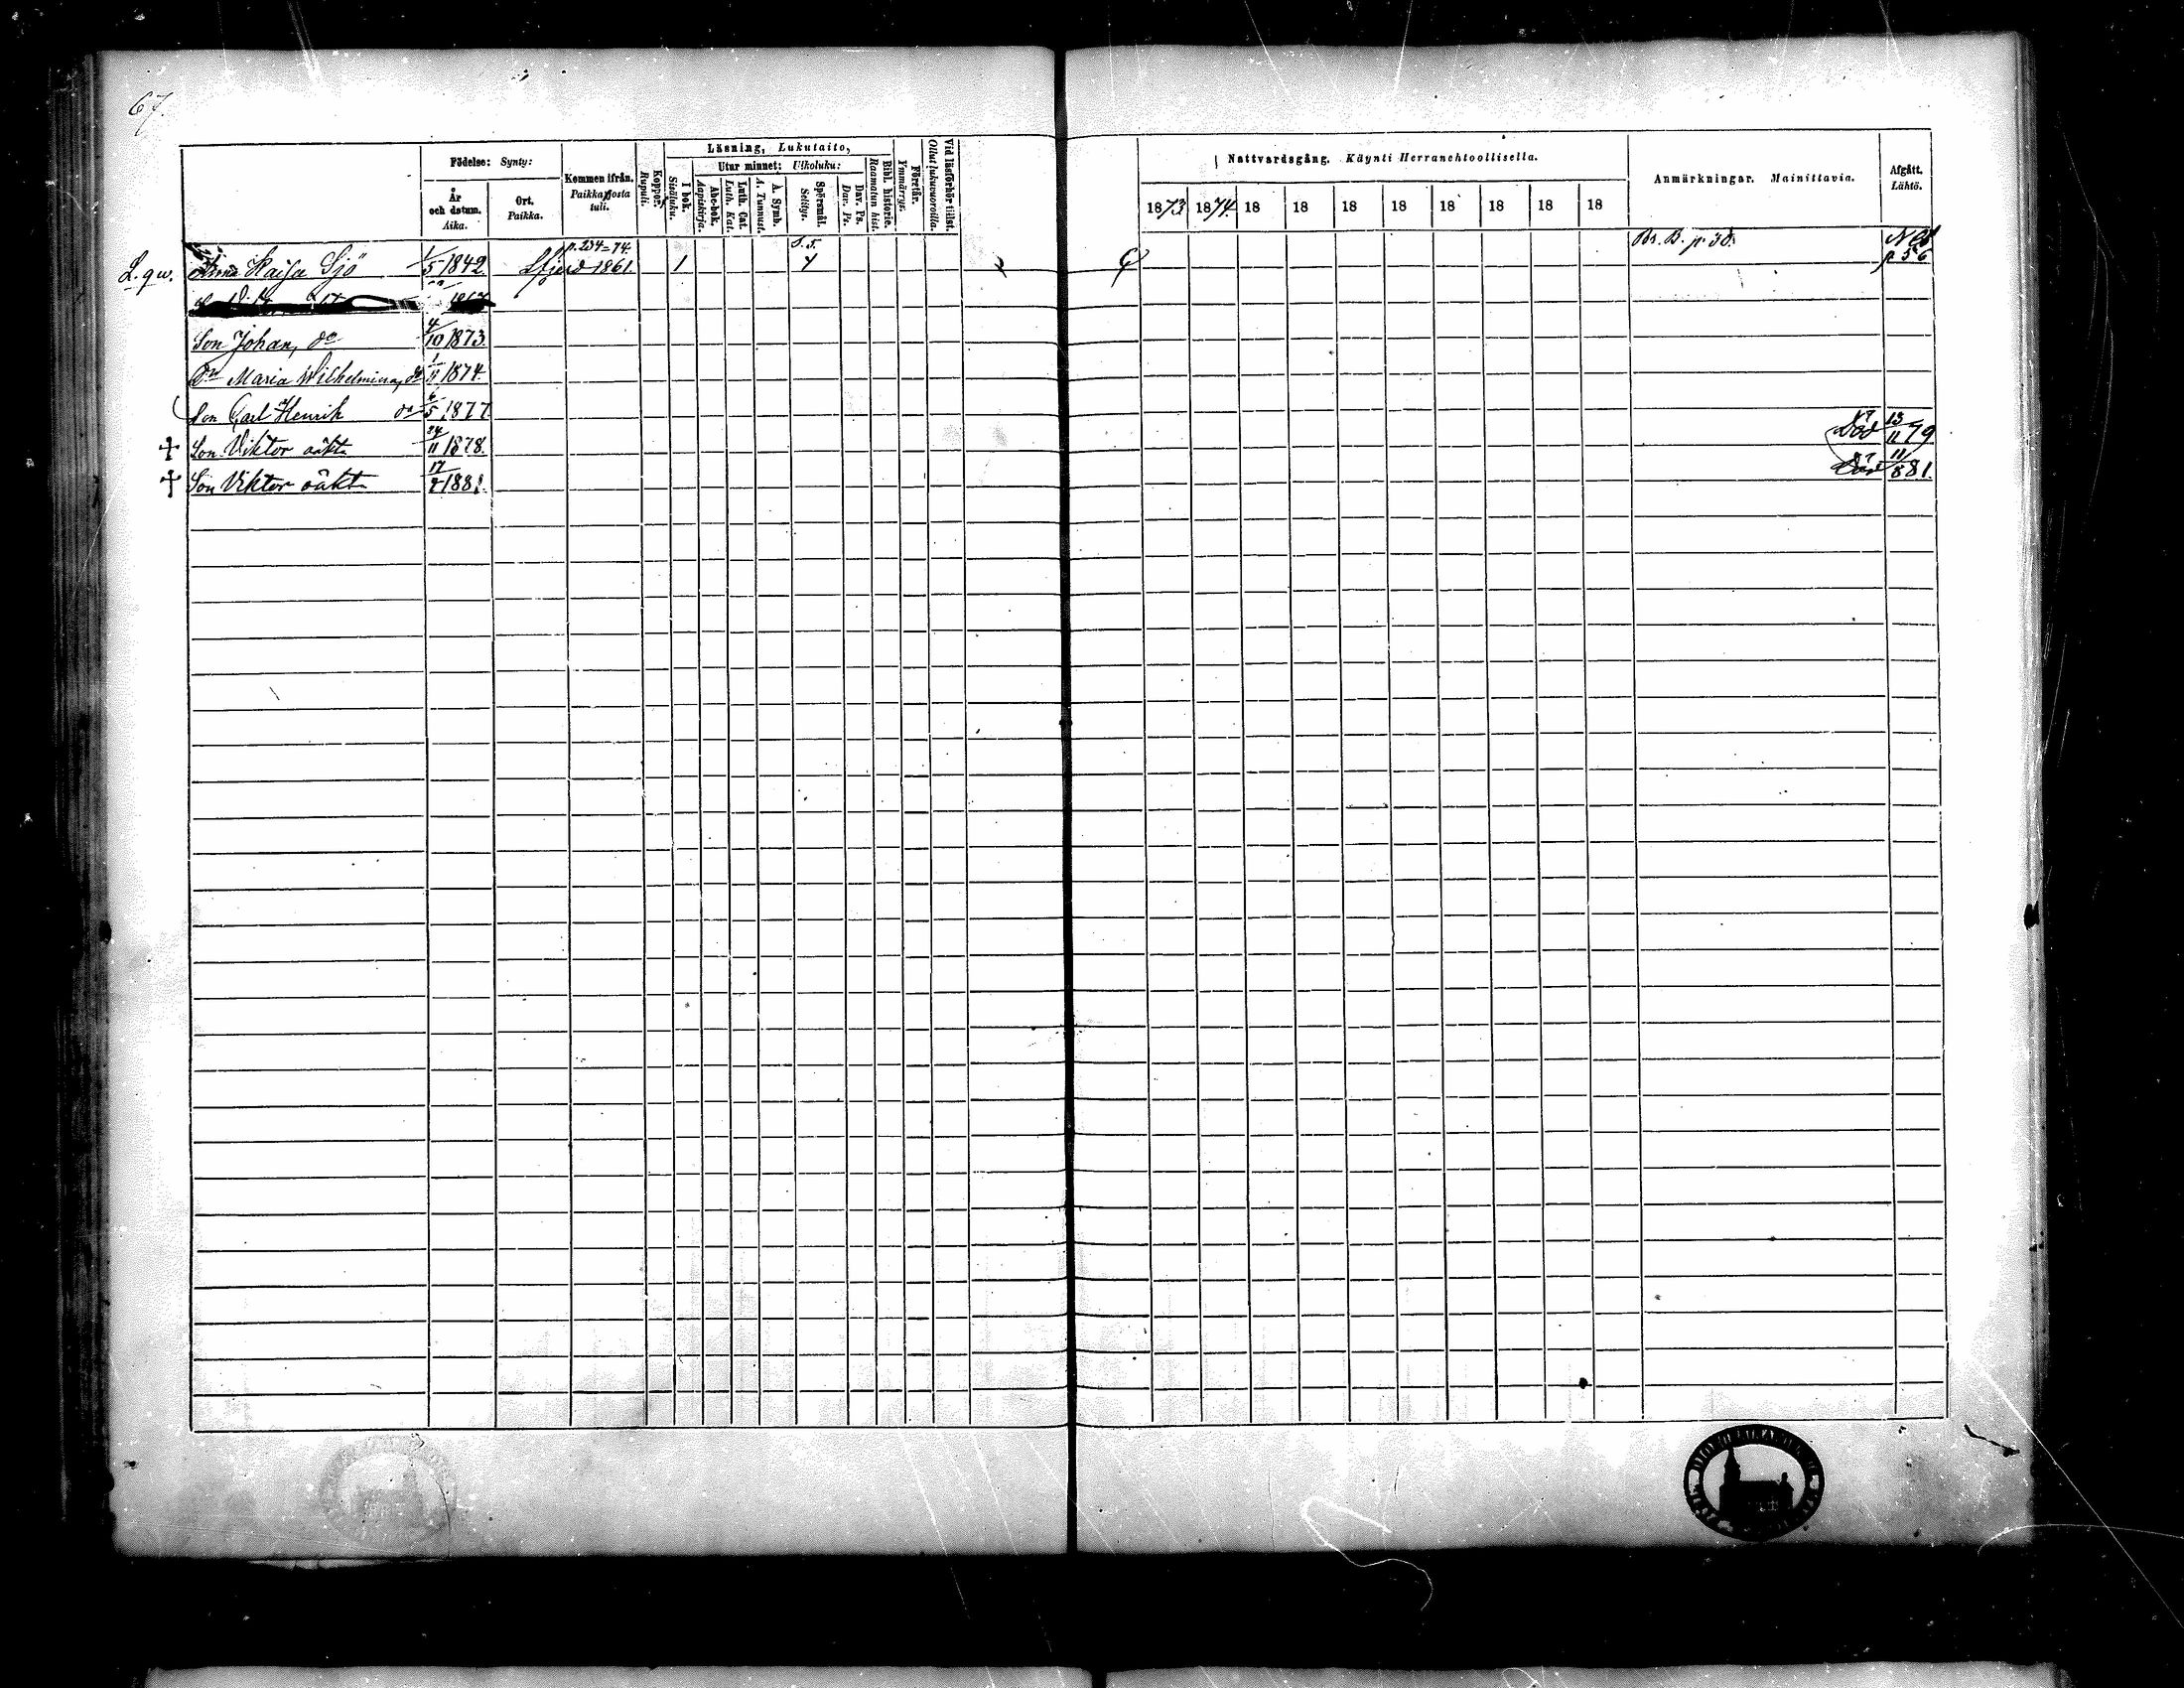 67.
Födelse: Synty:
År och datum. Aika.
Ort. Paikka.
Kommen ifrån. Paikka josta tuli.
Koppor. Rupuli.
Läsning, Lukutaito,
I bok. Sisäluku.
Utur minnet: Ulkoluku:
Abc-bok. Aapiskirja.
Luth. Cat. Luth. Kat.
A. Symb. A. Tunnust.
Spörsmål. Selitys.
Dav. Ps. Dav. Ps.
Bibl. historie. Raamatun hist.
Förstår. Ymmärrys.
Vid läsförhör tillst. Ollut lukuvuoroilla.
Nattvardsgång. Käynti Herranehtoollisella.
1873 1874 18 18 18 18 18 18 18 18
Anmärkningar. Mainittavia.
Afgått. Lähtö.
L. qv. Anna Kaisa Sjö 1/5 1842 Lfjerd 1861. p. 234=74. 1 Br. B. p. 38. p 56
Son Johan, do 4/10 1873.
Dr Maria Wilhelmina, do 1/11 1874.
Son Carl Henrik do 6/5 1877
Son Viktor oäkta 24/11 1878. Död 13/11 79
Son Viktor oäkt 17/7 1881. Död 11/8 81.